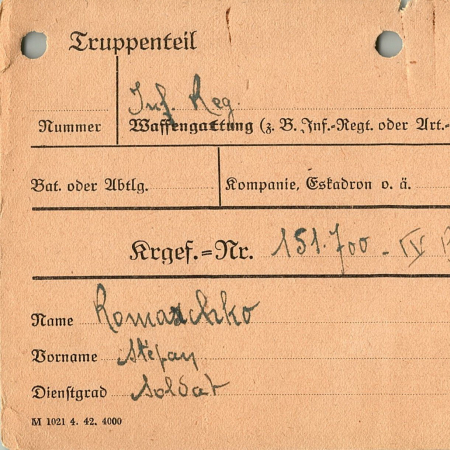 Truppenteil
Inf. Reg.
Nummer Waffengattung (z. B. Inf.-Regt. oder Art.-
Bat. oder Abtlg. Kompanie, Eskadron o. ä.
Krgef.=Nr. 151.700 - IV B
Name Romaschko
Vorname Stefan
Dienstgrad Soldat
M 1021 4. 42. 4000